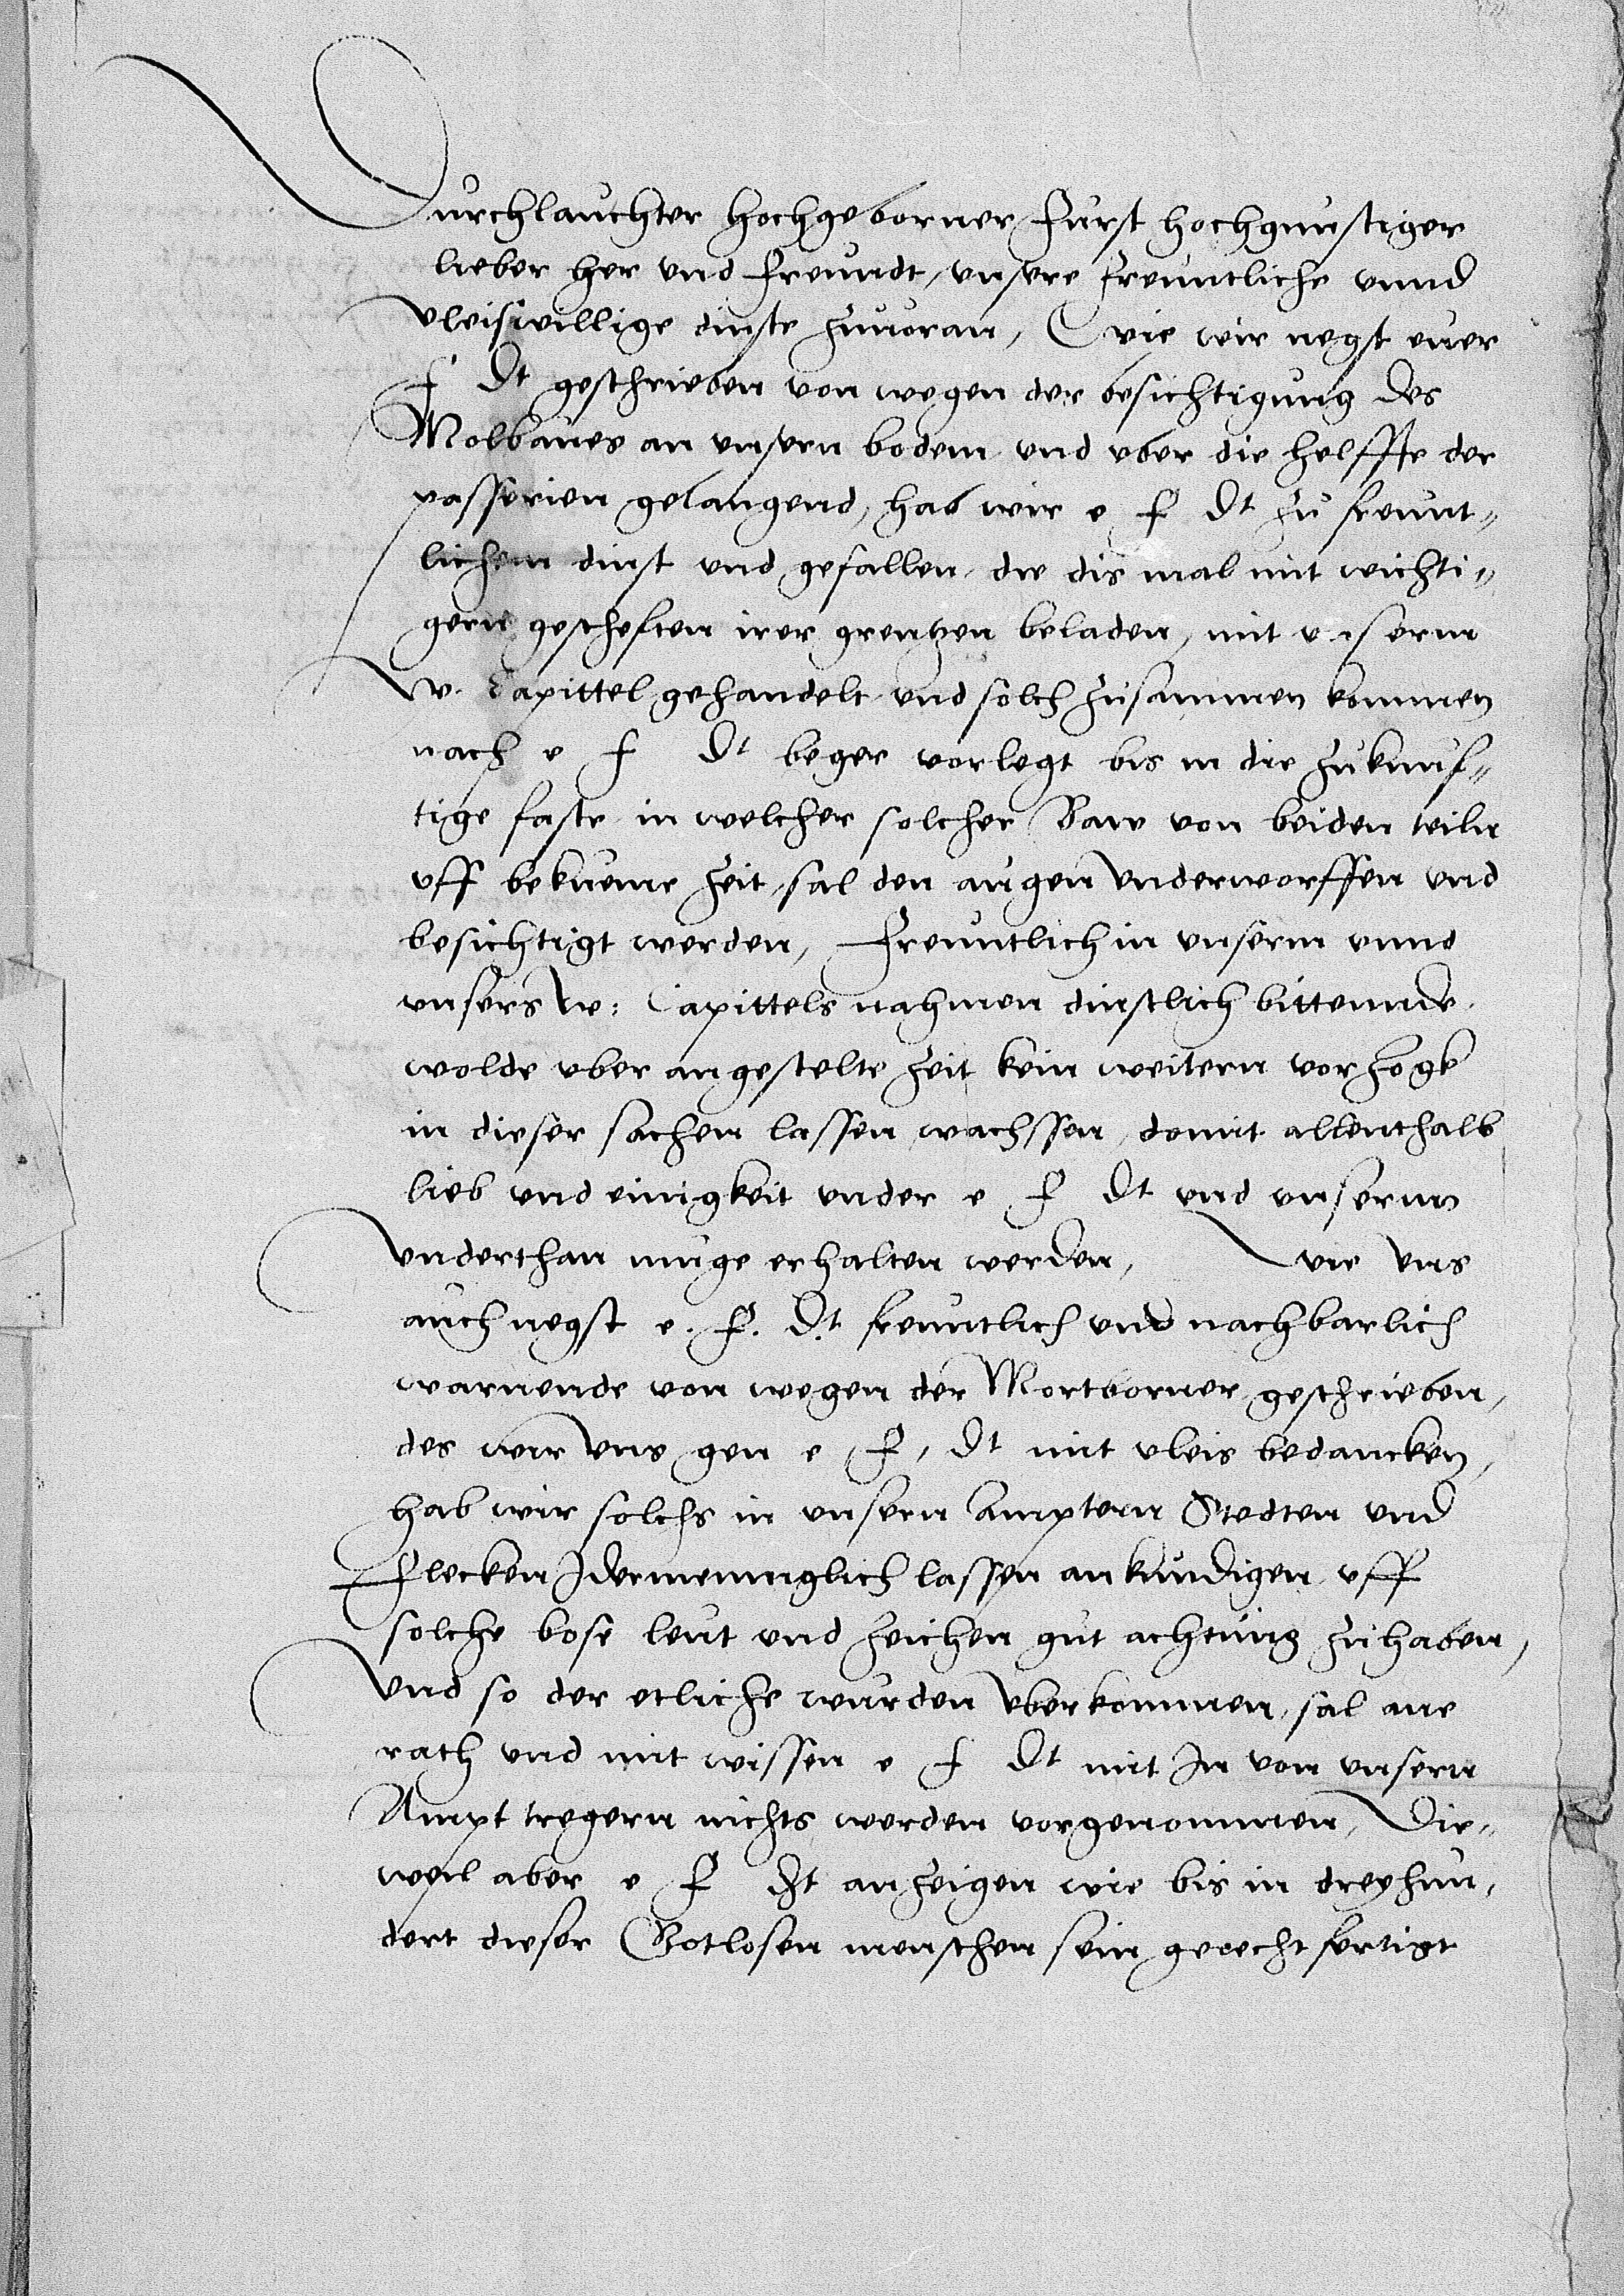 Durchlauchter hochgeborner Furst hochgunstiger
lieber her vnd Freundt, vnsere freuntliche vnnd
vleiswillige dinste zuuoran, Wie wir negst euer
f Dt geschrieben von wegen der besichtigung des
Molbaues an vnsern bodem vnd vber die helffte der
passerien gelangend, hab wir e f Dt zu freunt„
lichem dinst vnd gefallen, die dis mal mit wichti„
gern gescheften irer grentzen beladen, mit vnserm
W. Capittel gehandelt vnd solch zusammen kommen
nach e f Dt beger vorlegt bis in die zukunf„
tige faste in welcher solcher Baw von beiden teiln
vff bekueme zeit sal den augen vnderworffen vnd
besichtigt werden, Freuntlich in vnserm vnnd
vnsers W: Capittels nahmen dinstlich bittennde
wolde vber angestelte zeit kein weitern vorzogk
in dieser sachen lassen wachssen, domit allenthalb
lieb vnd einigkeit vnder e f Dt vnd vnsernn
vnderthan muge erhalten werden, Wie vns
auch negst e. f. Dt freuntlich vnd nachbarlich
warnende von wegen der Mortborner geschrieben,
des wir vns gen e f, Dt mit vleis bedancken,
hab wir solchs in vnsern Amptern Stedten vnd
Flecken Idermenniglich lassen ankundigen vff
solche bose leut vnd zeichen gut achtung zuhaben,
Vnd so der etliche wurden vberkommen, sal ane
rath vnd mit wissen e f Dt mit In von vnsern
Ampt tregern nichts werden vorgenommen, Die„
weil aber e f Dt anzeigen wie bis in dreyhun„
dert dieser Gotlosen menschen sein gerechtfertigt